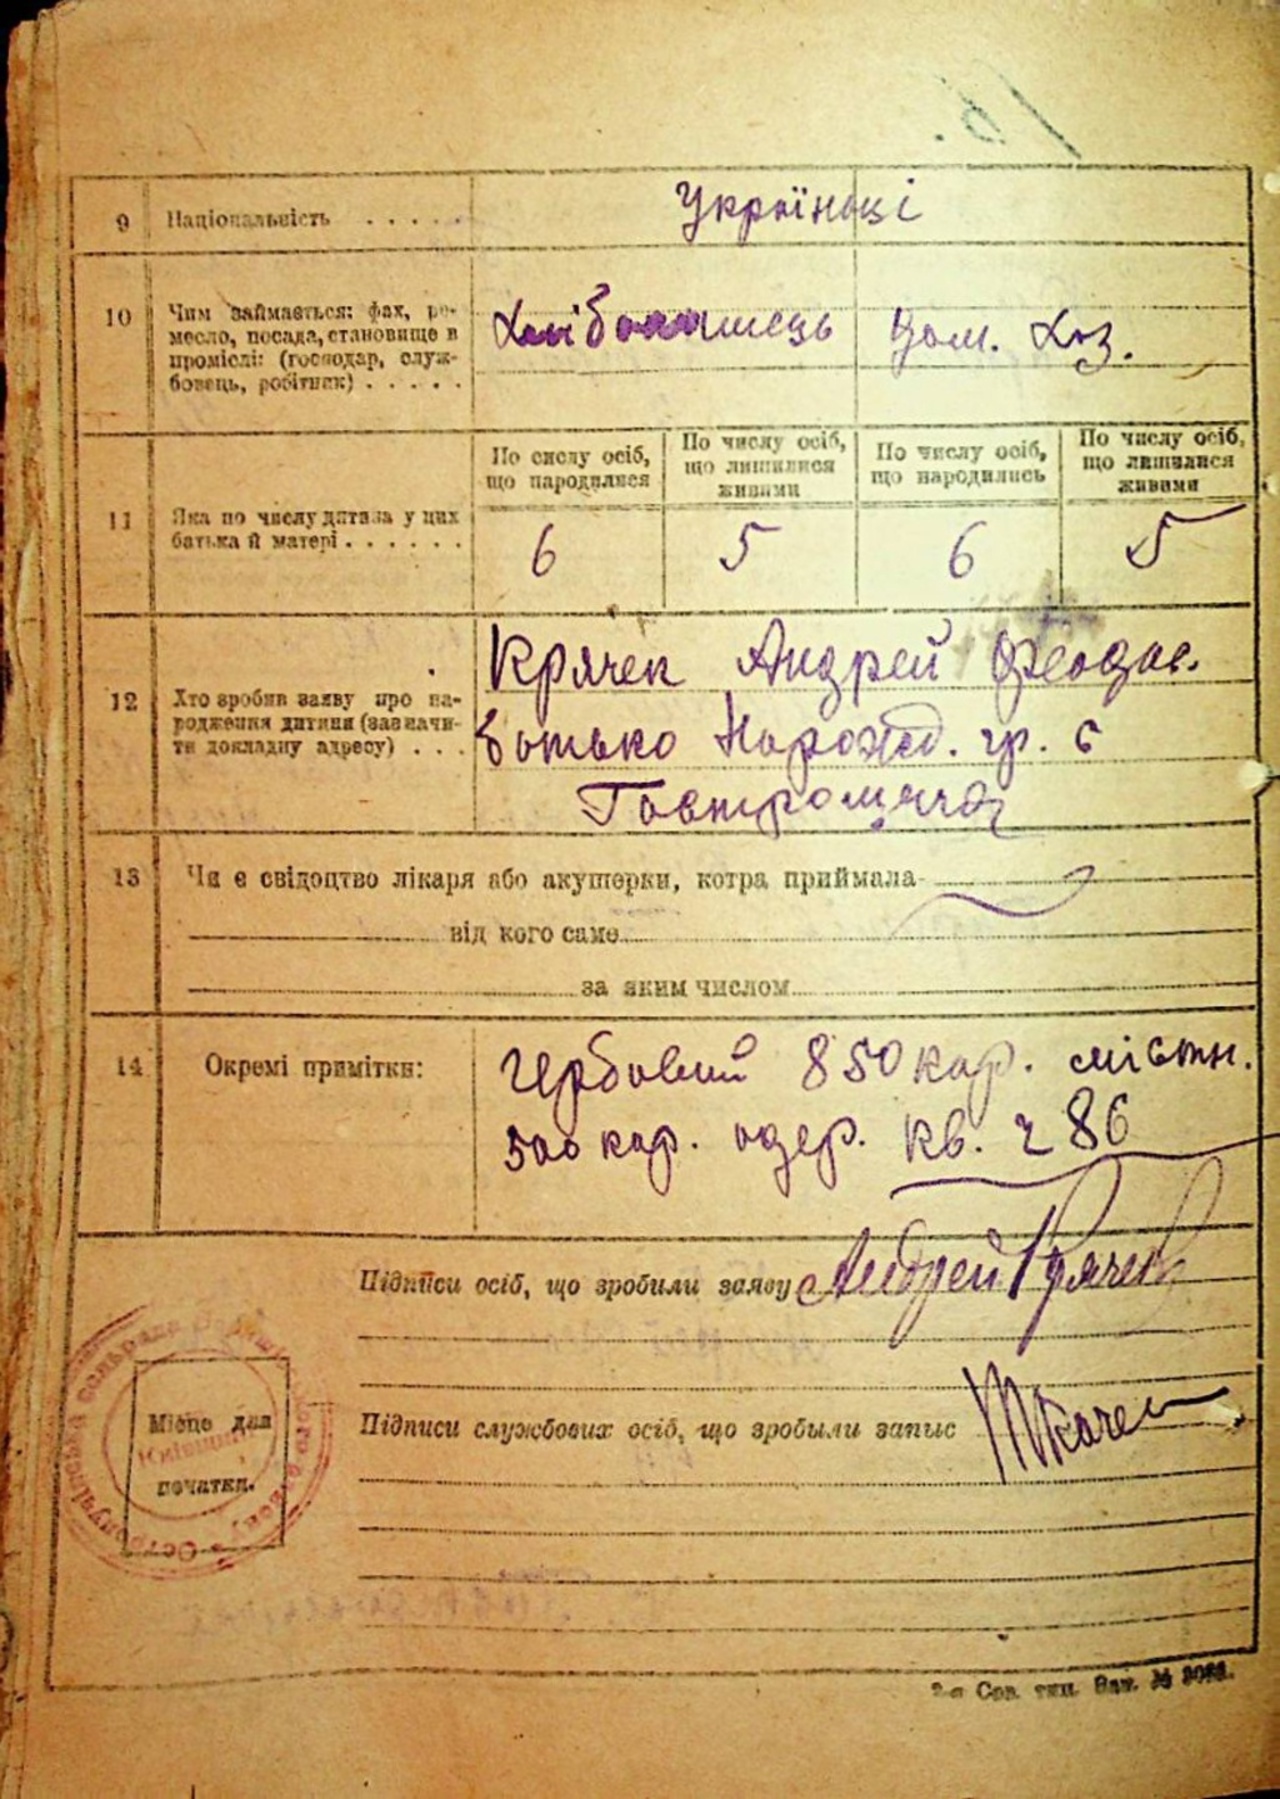 9 Національність . . . . . Українці
10 Чим займається: фах, ре-
месло, посада, становище в
промислі: (господар, служ-
бовець, робітник) . . . . .
Хлібопашець Дом. Хоз.
11 Яка по числу дитина у цих
батька й матері . . . . . .
По числу осіб,
що народилися
По числу осіб,
що лишилися
живими
По числу осіб,
що народились
По числу осіб,
що лишилися
живими
6 5 6 5
12 Хто зробив заяву про на-
родження дитини (зазначи-
ти докладну адресу) . . .
Крячек Андрей Феодос.
батько Нарожд. гр. с
13 Чи є свідоцтво лікаря або акушерки, котра приймала
від кого саме
за яким числом
14 Окремі примітки:
Гербовий 850 кар. містн.
500 кар. одер. кв. ч 86
Підписи осіб, що зробили заяву Андрей Крячек
Підписи службових осіб, що зробыли запыс
Місце для
початки.
Київщини
2-а Сов. тип. Зак. №